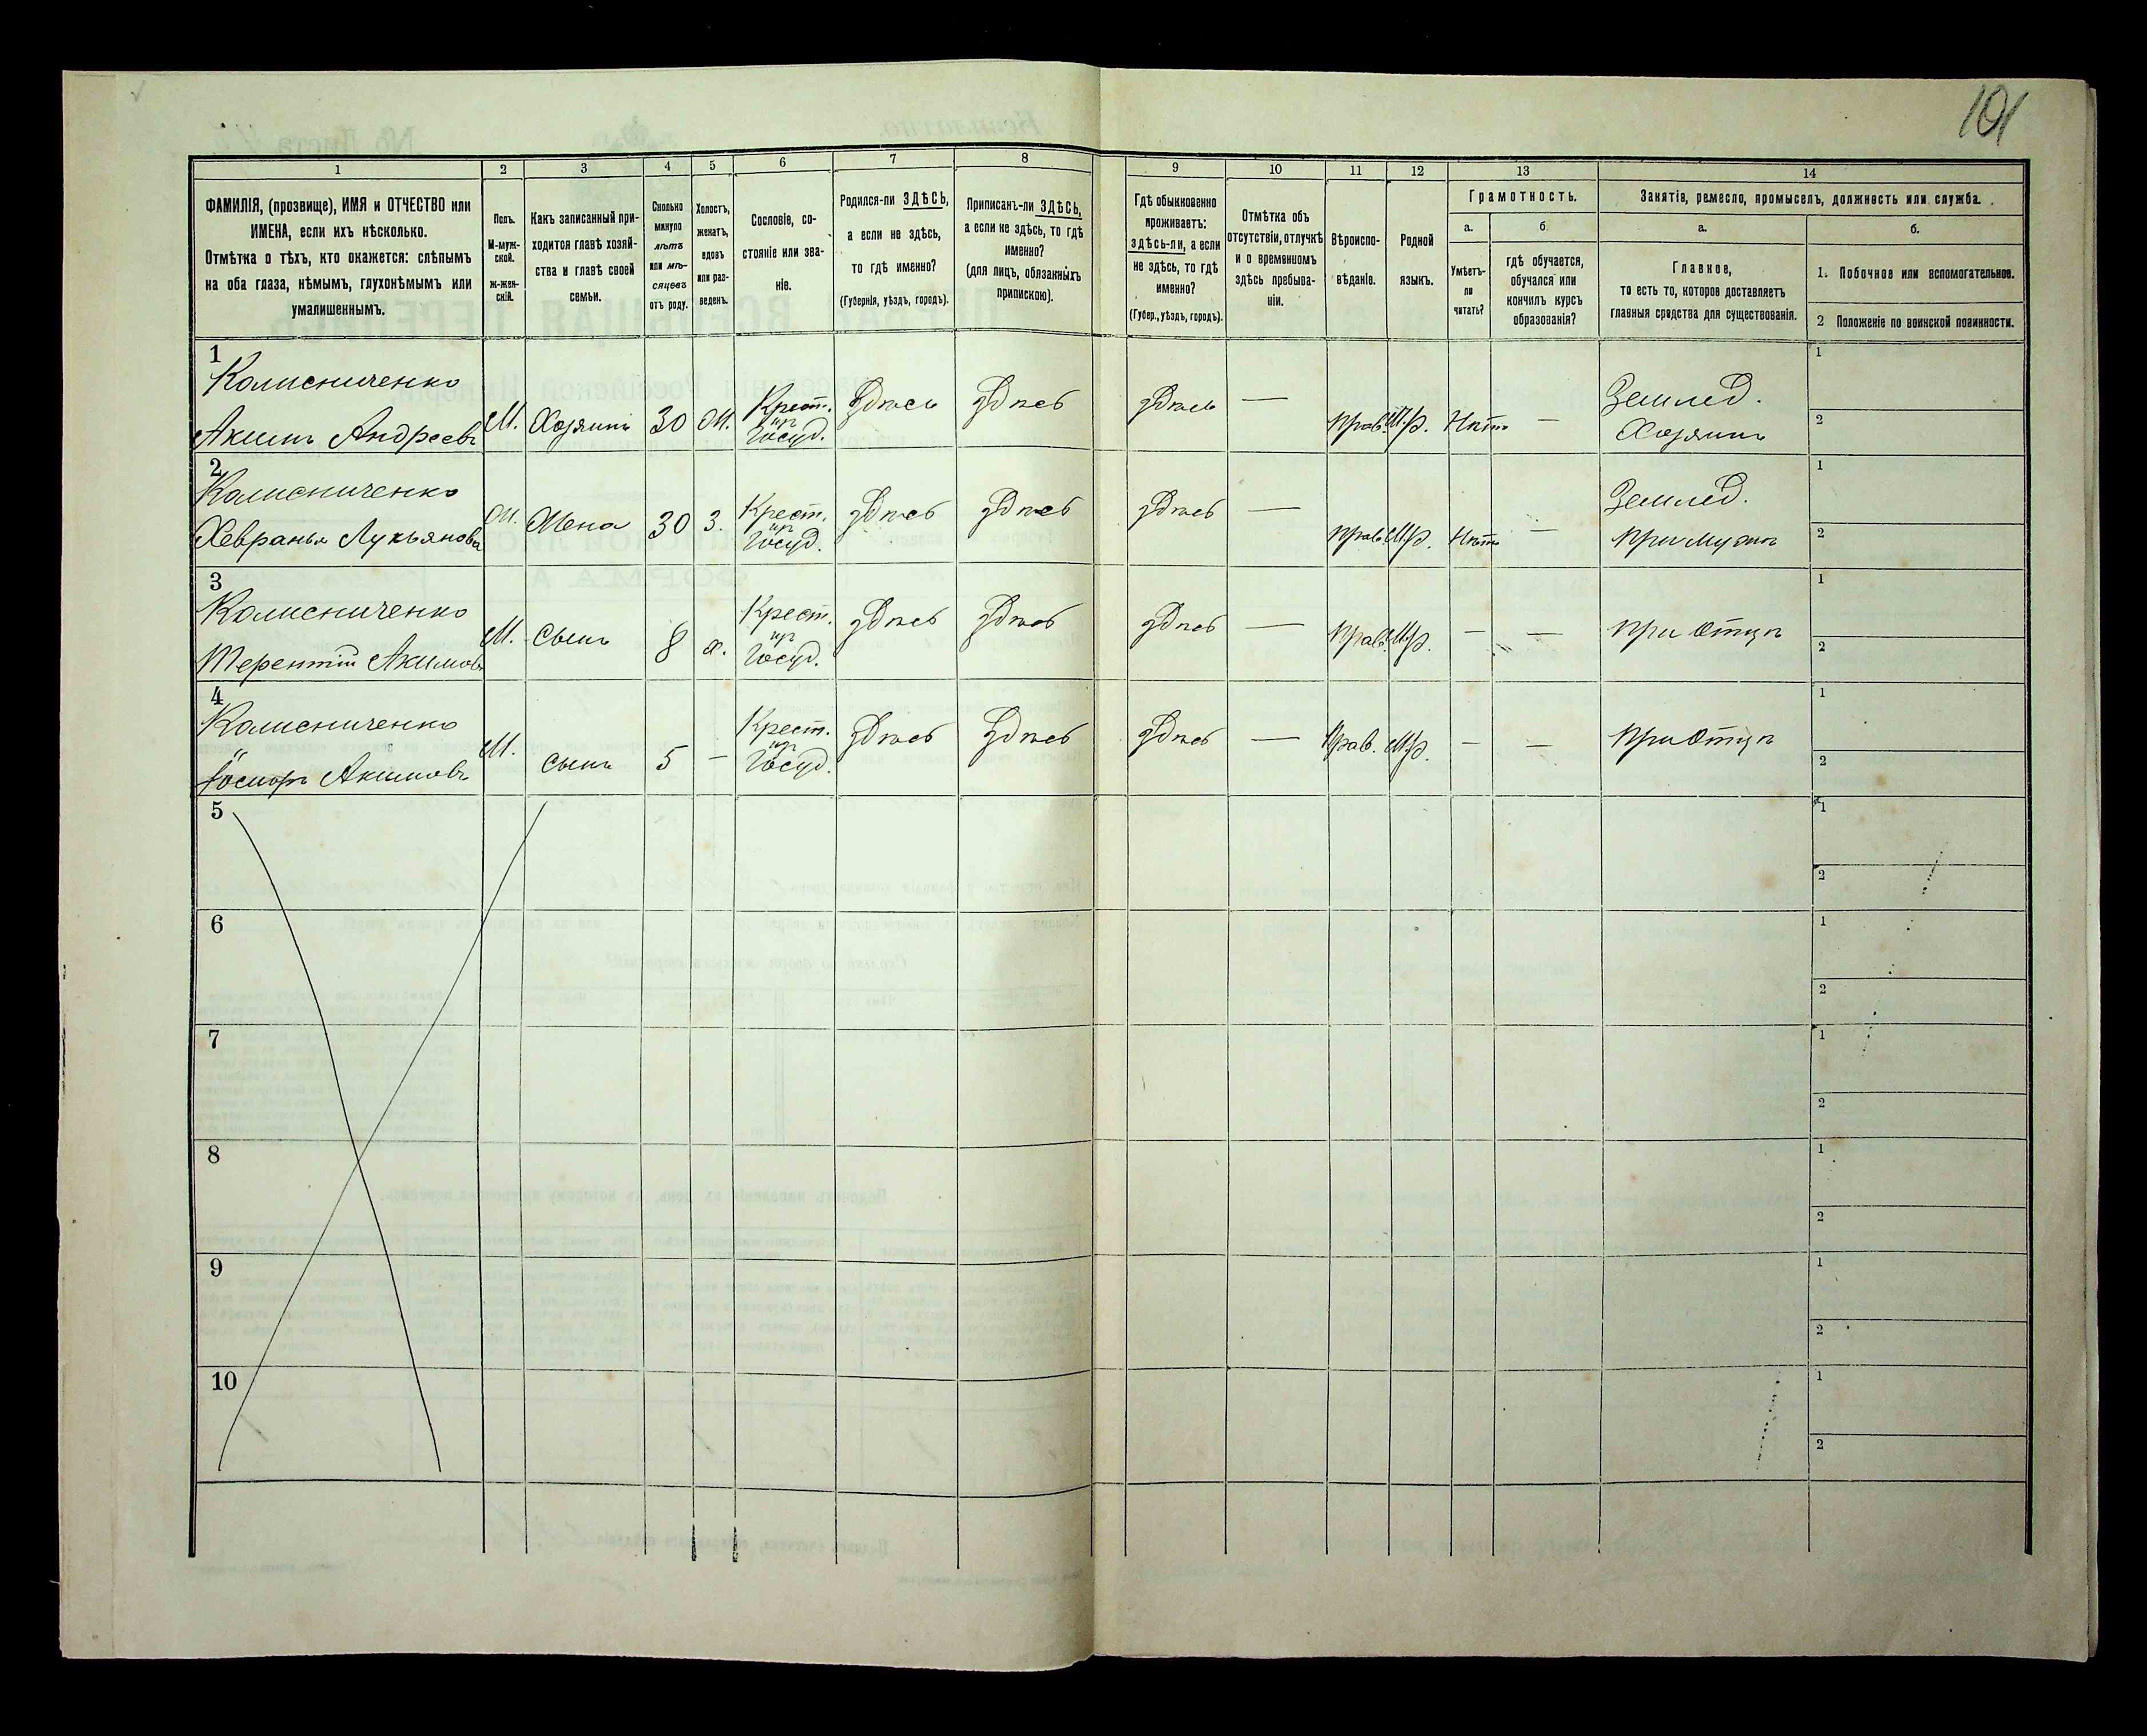 101
1
2
3
4
5
6
7
8
9
10
11
12
13
14
ФАМИЛІЯ, (прозвище), ИМЯ и ОТЧЕСТВО или
ИМЕНА, если ихъ нѣсколько.
Отмѣтка о тѣхъ, кто окажется: слѣпымъ
на оба глаза, нѣмымъ, глухонѣмымъ или
умалишеннымъ.
Полъ.
М-муж-
ской.
ж-жен-
скій.
Какъ записанный при-
ходится главѣ хозяй-
ства и главѣ своей
семьи.
Сколько
минуло
лѣтъ
или мѣ-
сяцевъ
отъ роду.
Холостъ,
женатъ,
вдовъ
или раз-
веденъ.
Сословіе, со-
стояніе или зва-
ніе.
Родился-ли ЗДѢСЬ,
а если не здѣсь,
то гдѣ именно?
(Губернія, уѣздъ, городъ).
Приписанъ-ли ЗДѢСЬ,
а если не здѣсь, то гдѣ
именно?
(для лицъ, обязанныхъ
припискою).
Гдѣ обыкновенно
проживаетъ:
ЗДѢСЬ-ли, а если
не здѣсь, то гдѣ
именно?
(Губер., уѣздъ, городъ).
Отмѣтка объ
отсутствіи, отлучкѣ
и о временномъ
здѣсь пребыва-
ніи.
Вѣроиспо-
вѣданіе.
Родной
языкъ.
Грамотность.
а.
Умѣетъ-
ли
читать?
б.
гдѣ обучается,
обучался или
кончилъ курсъ
образованія?
Занятія, ремесло, промыселъ, должность или служба.
а.
Главное,
то есть то, которое доставляетъ
главныя средства для существованія.
б.
1. Побочное или вспомогательное.
2 Положеніе по воинской повинности.
1
Колисниченко
Акимъ Андреевъ
М.
Хозяинъ
30
Ж.
Крест.
изъ
Госуд.
Здѣсь
Здѣсь
Здѣсь
—
Прав.
Мр.
Нѣтъ
—
Землед.
Хозяинъ
1
2
2
Колисниченко
Хевранья Лукьянова
Ж.
Жена
30
З.
Крест.
изъ
Госуд.
Здѣсь
Здѣсь
Здѣсь
—
Прав.
Мр.
Нѣтъ
—
Землед.
При мужѣ
1
2
3
Колисниченко
Терентій Акимовъ
М.
Сынъ
8
х.
Крест.
изъ
Госуд.
Здѣсь
Здѣсь
Здѣсь
—
Прав.
Мр.
—
—
При Отцѣ
1
2
4
Колисниченко
Іосифъ Акимовъ
М.
Сынъ
5
—
Крест.
изъ
Госуд.
Здѣсь
Здѣсь
Здѣсь
—
Прав.
Мр.
—
—
При Отцѣ
1
2
5
1
2
6
1
2
7
1
2
8
1
2
9
1
2
10
1
2